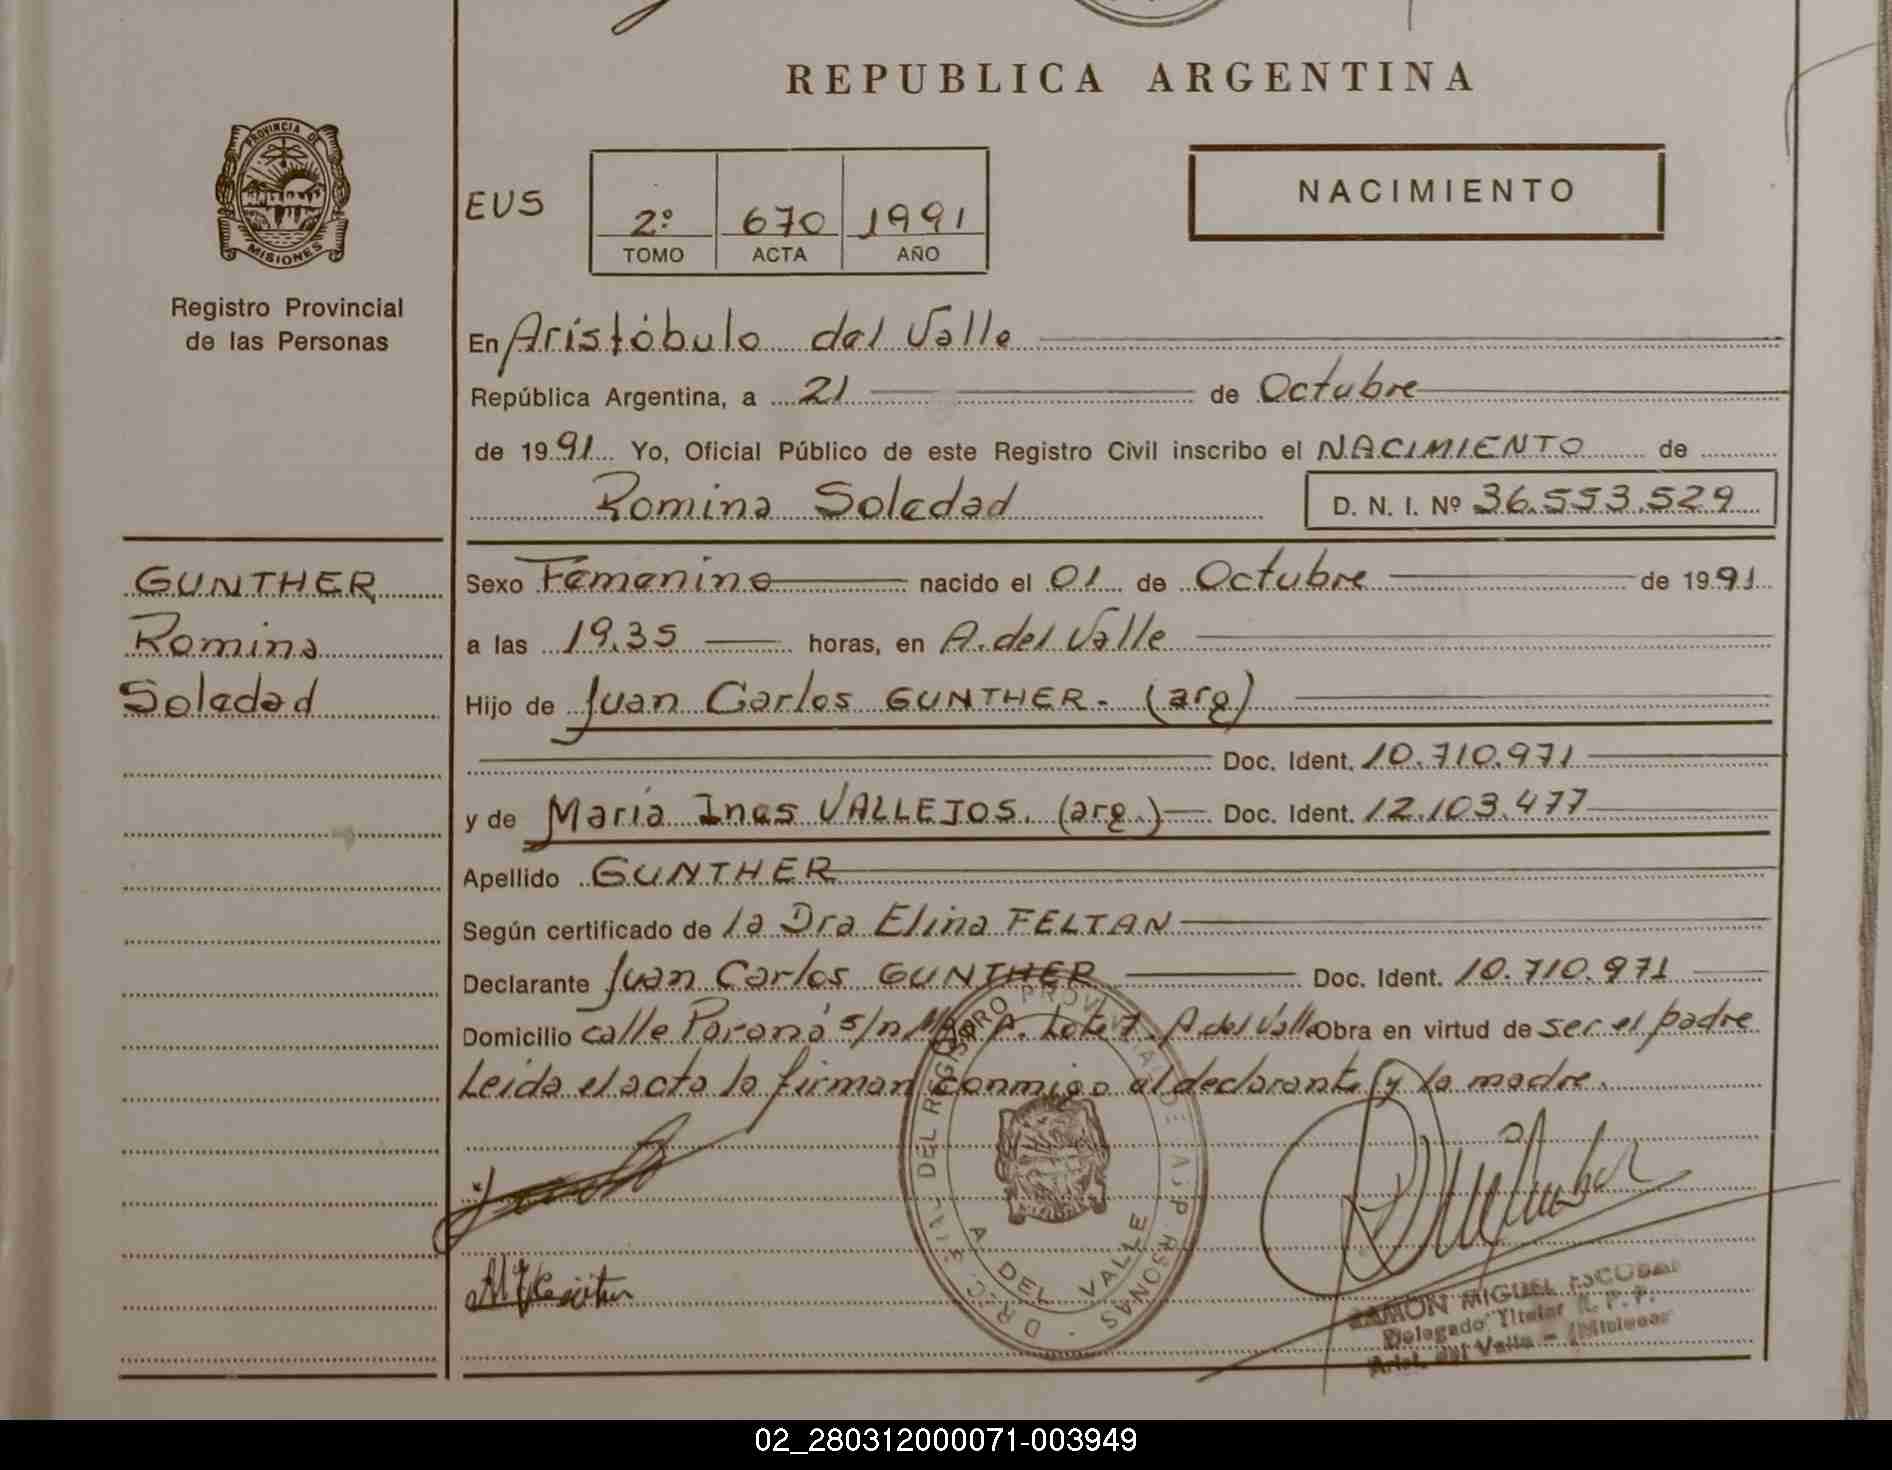 REPUBLICA ARGENTINA
PROVINCIA DE
MISIONES
Registro Provincial
de las Personas
EUS
2º 670 1991
TOMO ACTA AÑO
NACIMIENTO
En Aristóbulo del Valle
República Argentina, a 21 de Octubre
de 1991 Yo, Oficial Público de este Registro Civil inscribo el NACIMIENTO de
Romina Soledad D. N. I. Nº 36.553.529
GUNTHER
Romina
Soledad
Sexo Femenino nacido el 01 de Octubre de 1991
a las 19.35 horas, en A. del Valle
Hijo de Juan Carlos GUNTHER. (arg)
Doc. Ident. 10.710.971
y de María Ines VALLEJOS. (arg.) Doc. Ident. 12.103.477
Apellido GUNTHER
Según certificado de la Dra Elina FELTAN
Declarante Juan Carlos GUNTHER Doc. Ident. 10.710.971
Domicilio calle Paraná s/n A. Lote 7. A del Valle Obra en virtud de ser el padre
Leida el acta la firman conmigo el declarante y la madre.
DEL REGISTRO PROVINCIAL DE
A. DEL VALLE
RAMON MIGUEL ESCOBAR
Delegado Titular R. P. P.
Arist. del Valle - (Misiones)
02_280312000071-003949